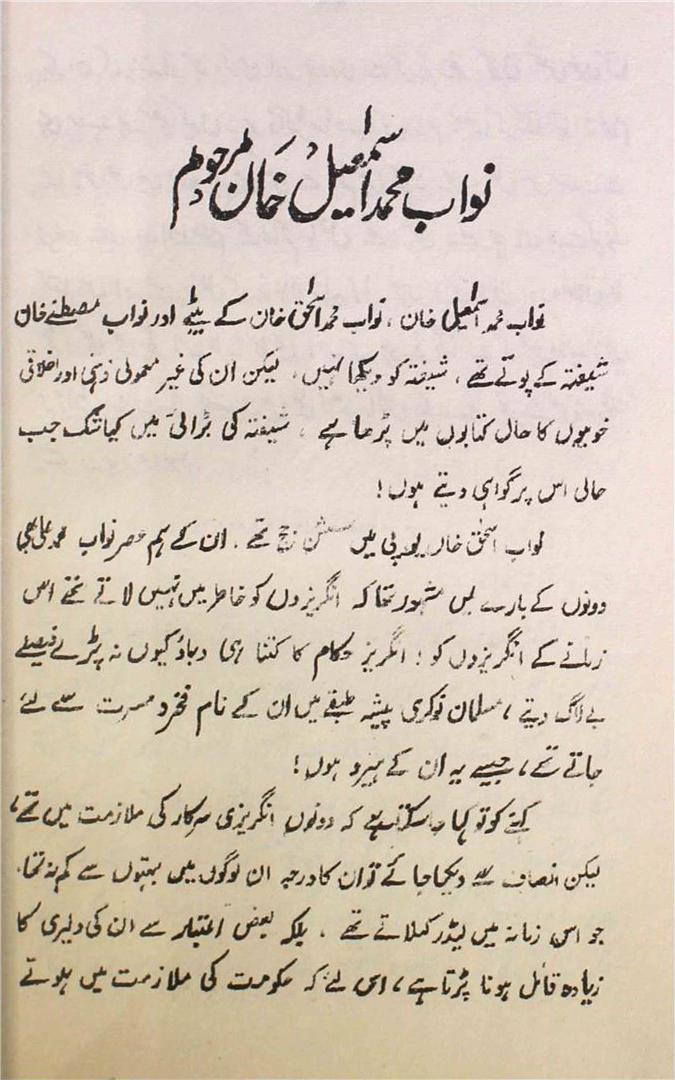 نواب محمد اسمٰعیل خان مرحوم
نواب محمد اسمٰعیل خان، نواب محمد اسحٰق خان کے بیٹے اور نواب مصطفےٰ خان
شیفتہ کے پوتے تھے، شیفتہ کو دیکھا نہیں، لیکن ان کی غیر معمولی ذہنی اور اخلاقی
خوبیوں کا حال کتابوں میں پڑھا ہے، شیفتہ کی بڑائی میں کیا شک جب
حالی اس پر گواہی دیتے ہوں!
نواب اسحٰق خاں یو۔پی میں سشن جج تھے۔ ان کے ہم عصر نواب محمد علی بھی
دونوں کے بارے میں مشہور تھا کہ انگریزوں کو خاطر میں نہیں لاتے تھے اس
زمانے کے انگریزوں کو! انگریز حکام کا کتنا ہی دباؤ کیوں نہ پڑے فیصلے
بے لاگ دیتے، مسلمان نوکری پیشہ طبقے میں ان کے نام فخر و مسرت سے لئے
جاتے تھے، جیسے یہ ان کے ہیرو ہوں!
کہنے کو تو کہا جا سکتا ہے کہ دونوں انگریزی سرکار کی ملازمت میں تھے،
لیکن انصاف سے دیکھا جائے تو ان کا درجہ ان لوگوں میں بہتوں سے کم نہ تھا۔
جو اس زمانہ میں لیڈر کہلاتے تھے۔ بلکہ بعض اعتبار سے ان کی دلیری کا
زیادہ قائل ہونا پڑتا ہے، اس لئے کہ حکومت کی ملازمت میں ہوتے